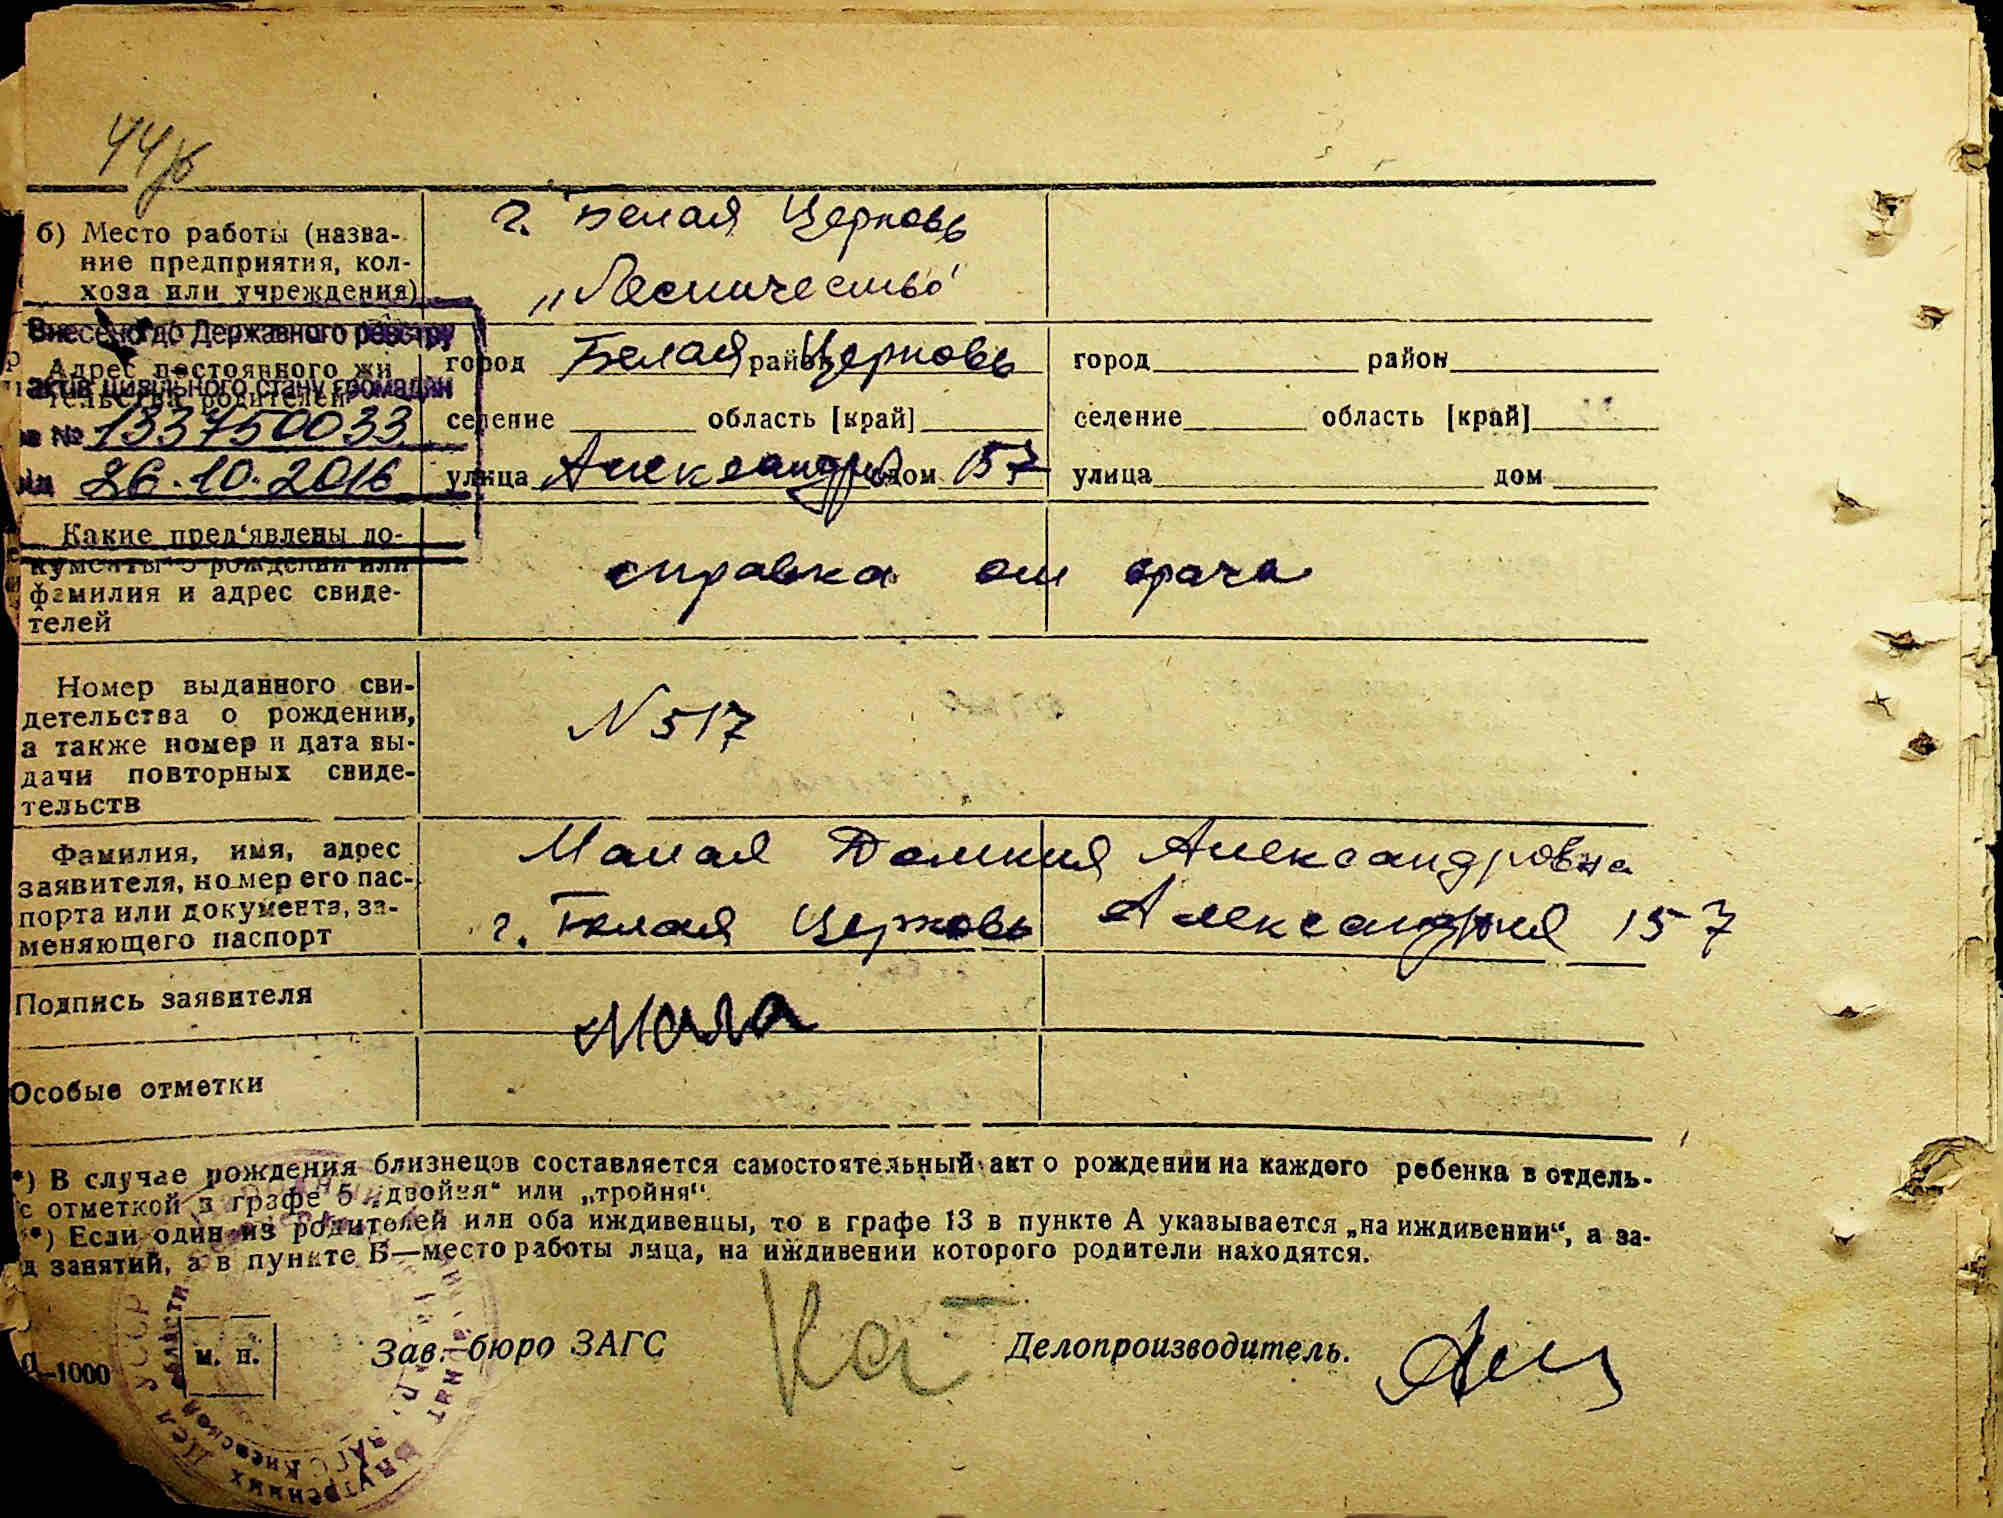 44
б) Место работы (назва-
ние предприятия, кол-
хоза или учреждения)
г. Белая Церковь
„Лесничество"
Внесено до Державного реєстру
актів цивільного стану громадян
№ 133750033
26.10.2016
Адрес постоянного жи
тельства родителей
город Белая Церковь район
селение область [край]
улица Александрия дом 157
город район
селение область [край]
улица дом
Какие пред‘явлены до-
кументы о рождении или
фамилия и адрес свиде-
телей
справка от врача
Номер выданного сви-
детельства о рождении,
а также номер и дата вы-
дачи повторных свиде-
тельств
N 517
Фамилия, имя, адрес
заявителя, номер его пас-
порта или документа, за-
меняющего паспорт
Малая Домкия Александровна
г. Белая Церковь Александрия 157
Подпись заявителя
Мала
Особые отметки
*) В случае рождения близнецов составляется самостоятельный акт о рождении на каждого ребенка в отдель-
с отметкой в графе 5 „двойня“ или „тройня“.
*) Если один из родителей или оба иждивенцы, то в графе 13 в пункте А указывается „на иждивении“, а за-
д занятий, а в пункте Б—место работы лица, на иждивении которого родители находятся.
м. п.
Зав. бюро ЗАГС
Делопроизводитель.
—1000
УССР
внутренних дел
ЗАГС Киевской области